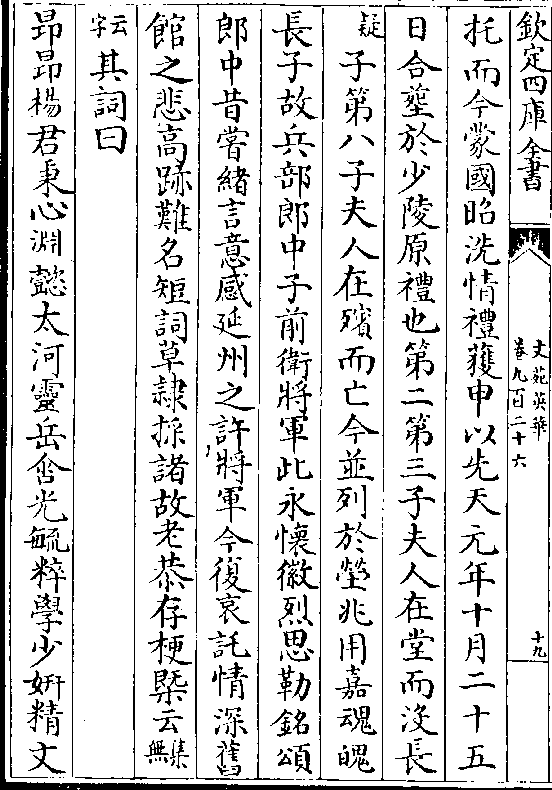 欽定四庫全書
文苑英華
卷九百二十六
十九
托而今蒙國昭洗情禮獲申以先天元年十月二十五
日合塟於少陵原禮也第二第三子夫人在堂而沒長
疑子第八子夫人在殯而亡今並列於塋兆用嘉魂魄
長子故兵部郎中子前衛將軍此永懷徽烈思勒銘頌
郎中昔嘗緒言意感延州之許將軍今復哀託情深舊
館之悲髙跡難名短詞草隷採諸故老恭存梗槩云集無
云字其詞曰
昂昂楊君秉心淵懿太河靈岳含光毓粹學少姸精文